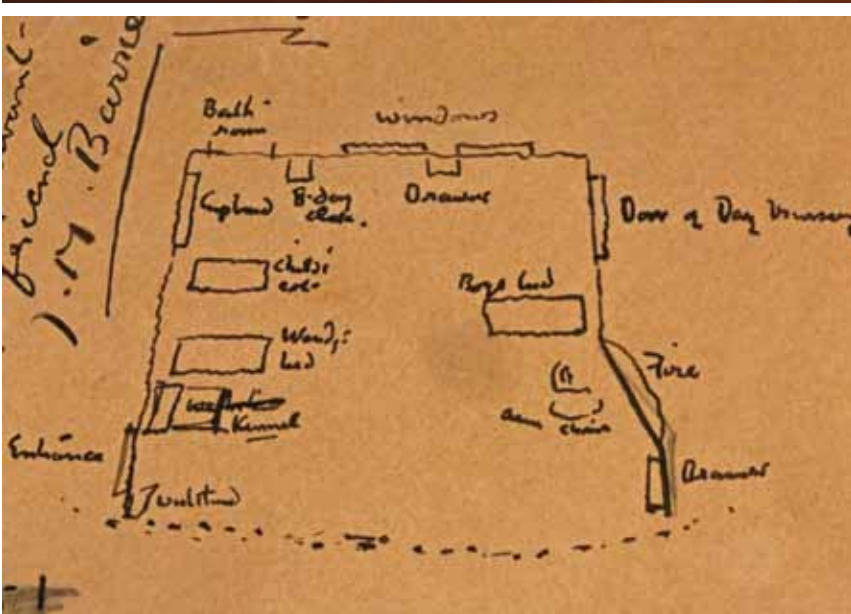 J. M. Barrie
Bath
room
windows
Cupboard
8-day
clock.
Drawers
Door of Day Nursery
Child's
cot
Boys bed
Wendy's
bed
Fire
Kennel
arm chair
Entrance
Drawers